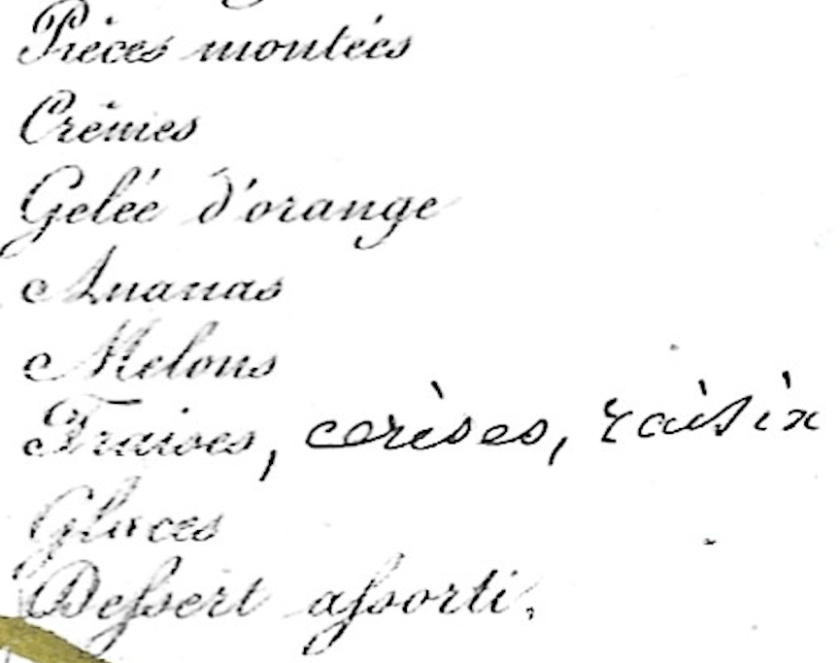 Pièces montées
Crêmes
Gelée d'orange
Ananas
Melons
Fraises, cerises, raisin
Glaces
Deſsert aſsorti.